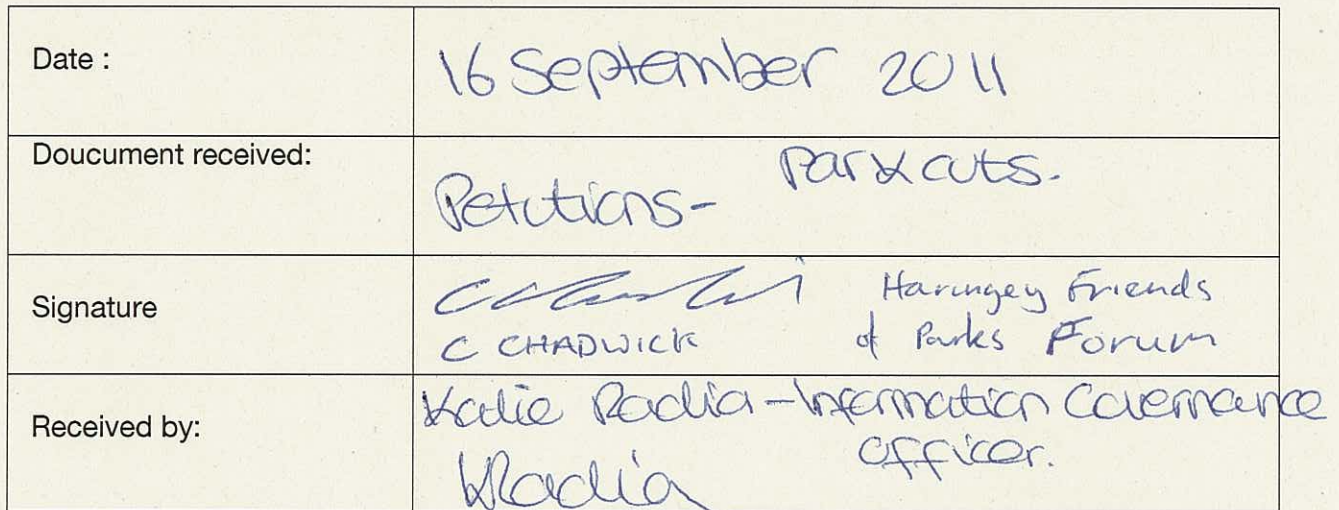 Date : 16 September 2011
Doucument received: Petitions- Park cuts.
Signature Haringey Friends
C CHADWICK of Parks Forum
Received by: Katie Radia - Information Governance
officer.
KRadia